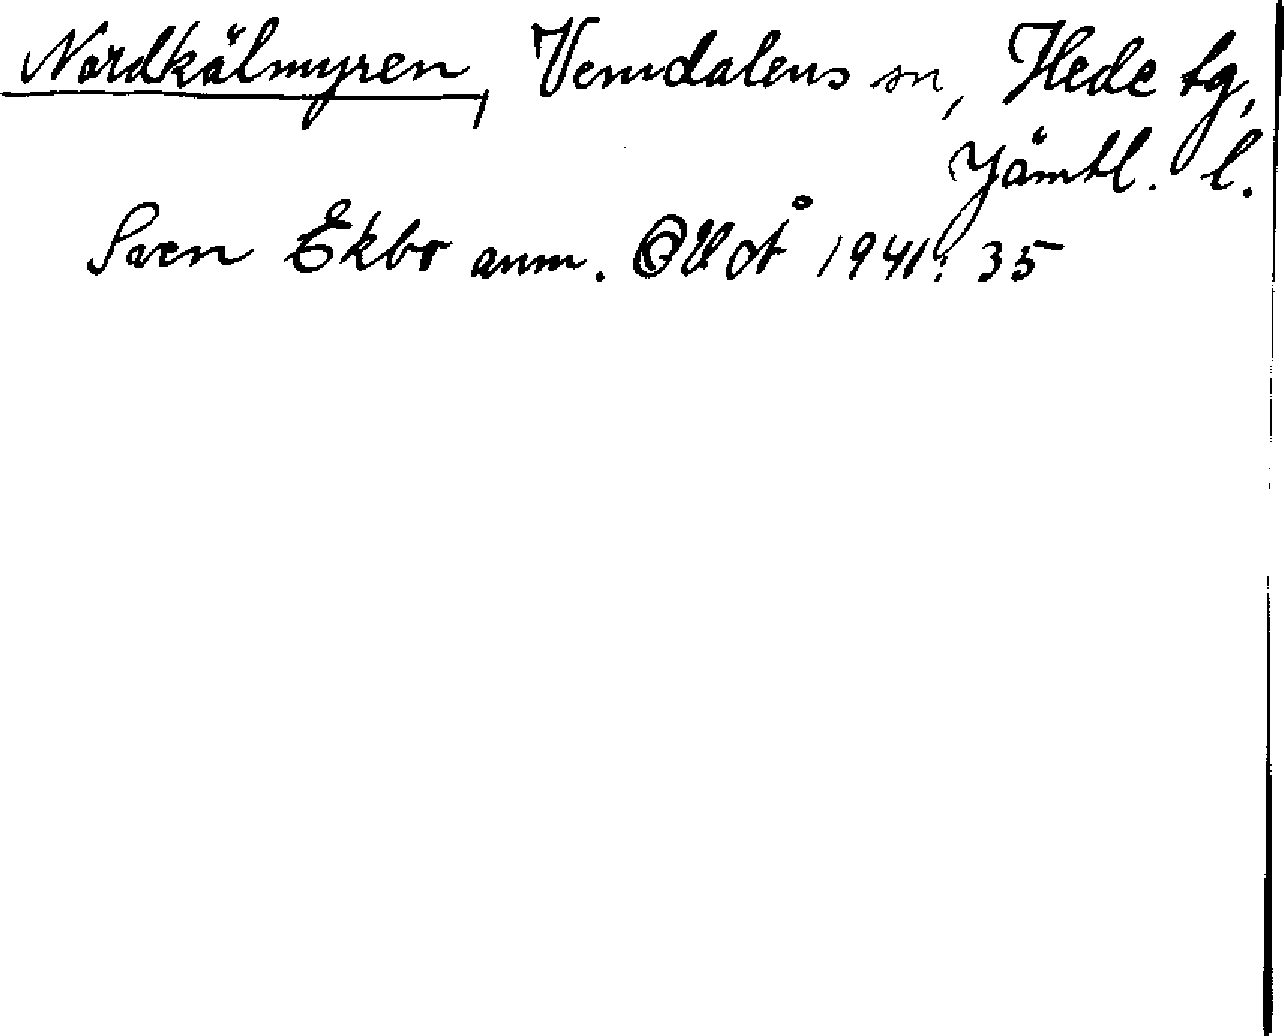 Nordkälmyren, Vemdalens sn, Hede tg,
Jämtl. l.
Sven Ekbo anm. OUÅ 1941: 35